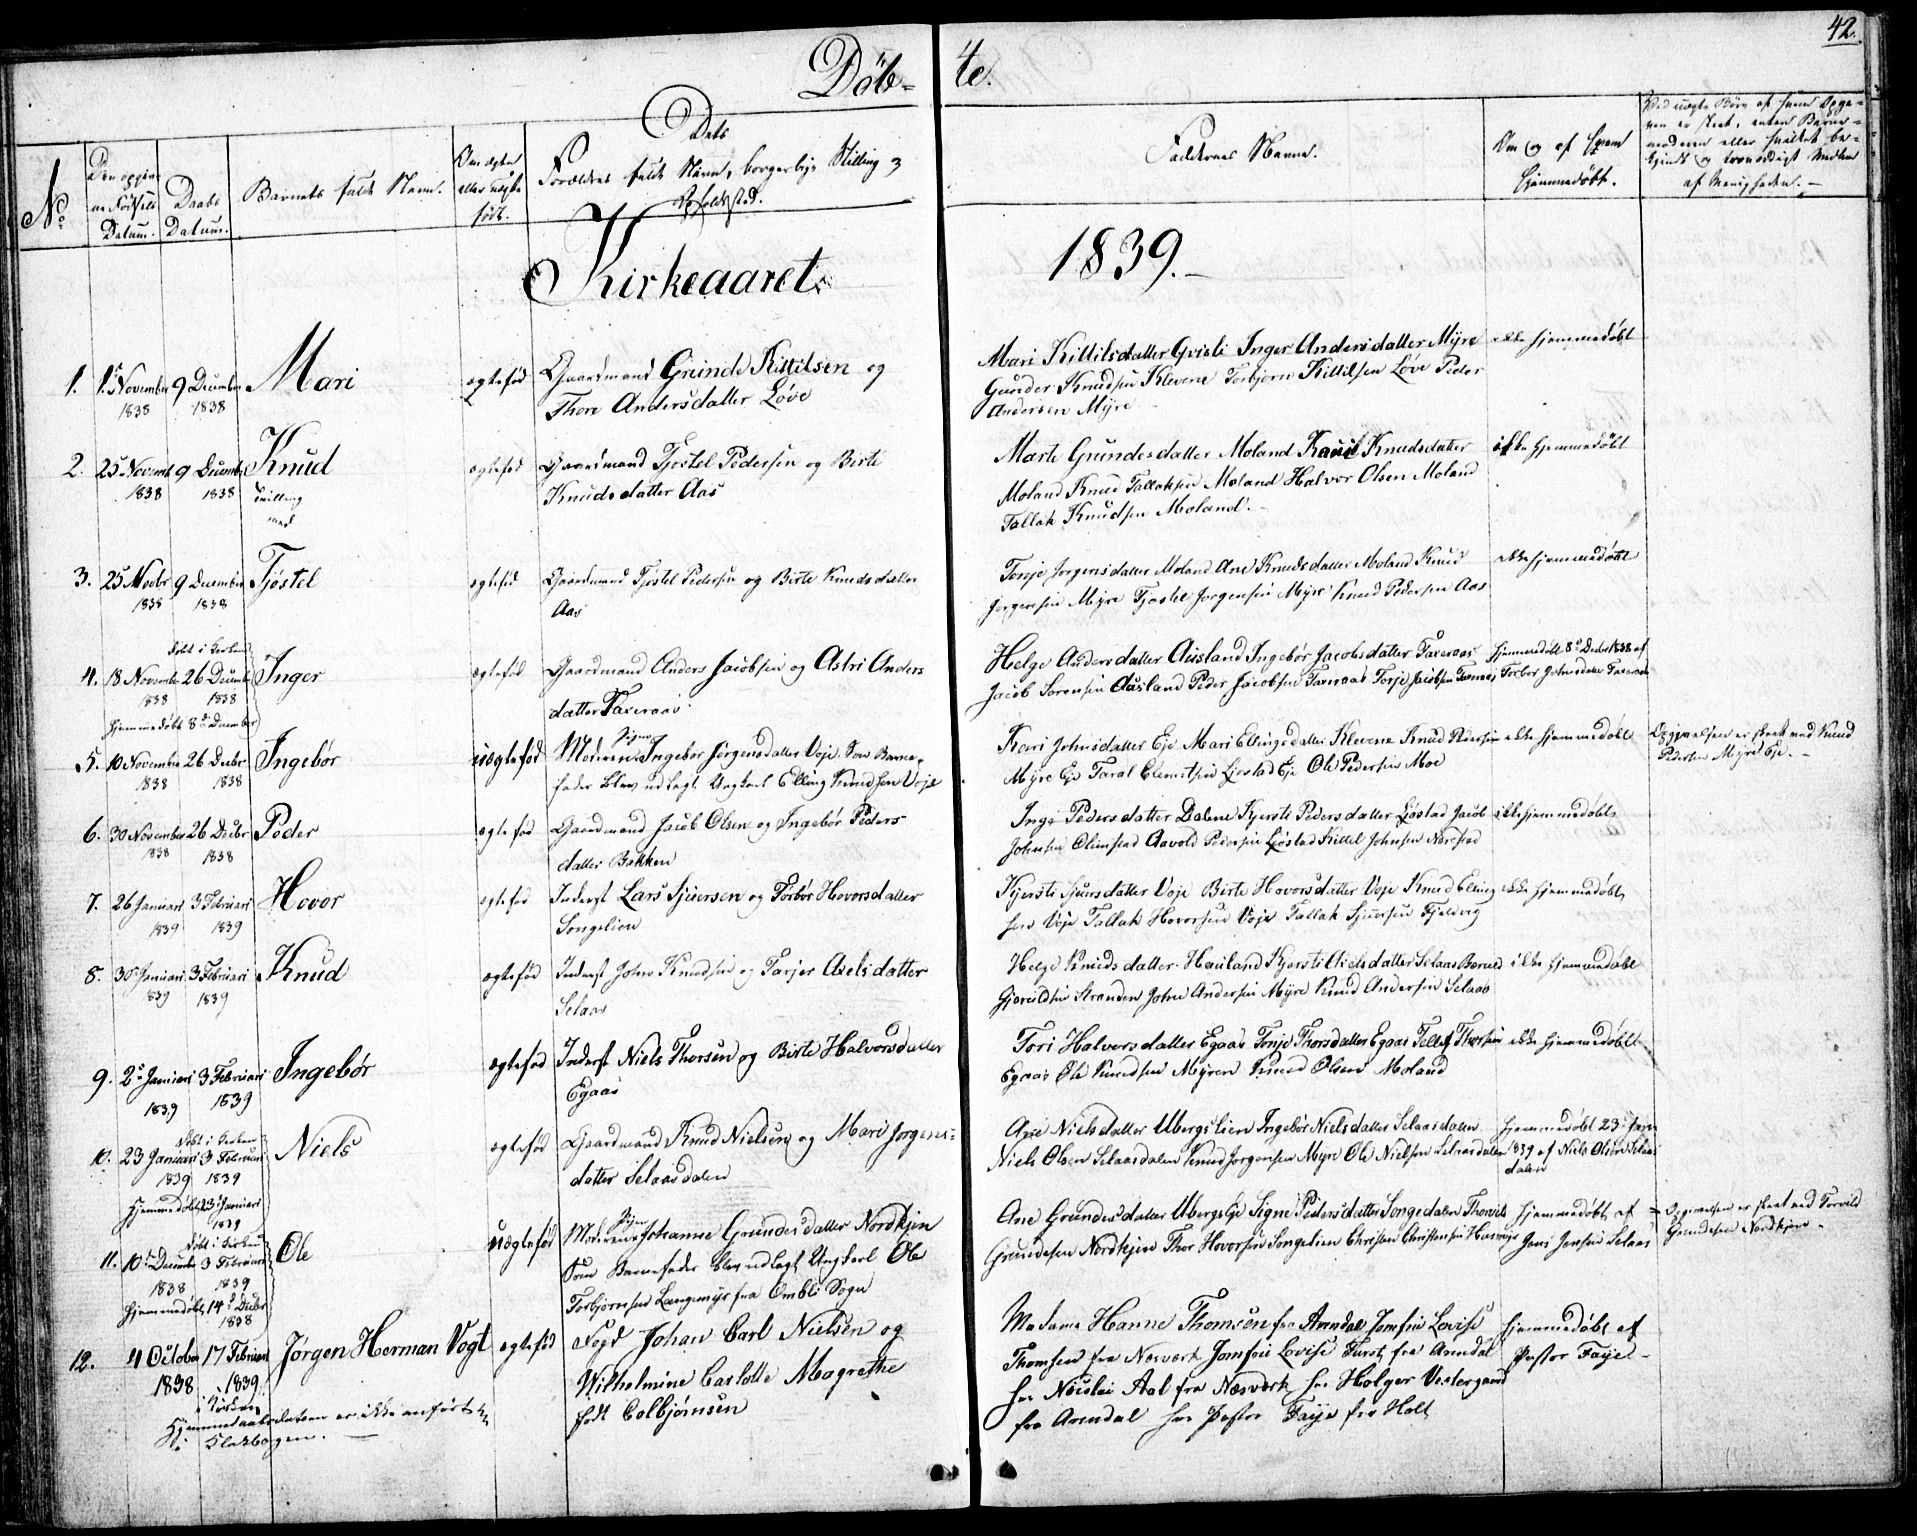 42.
Døb-
te.
No
Den opgivne Fødsels Datum.
Daabs Datum.
Barnets fulde Navn.
Om ægte eller uægte født.
Dets Forældres fulde Navn, borgerlige Stilling og Opholdssted.
Faddernes Navne.
Om og af hvem hjemmedøbt.
Ved uægte Børn af hvem Opgaven er skeet, enten Barnemoderen eller hvilket bekjendt og troværdigt Medlem af Menigheden. —
Kirkeaaret
1839. —
1. 1ste November 1838
9 December 1838
Mari
ægtefød
Gaardmand Grunde Kittilsen og
Thore Andersdatter Løve
Mari Kittilsdatter Qvisli Inger Andersdatter Myre
Gunder Knudsen Klevene Torbjørn Kittilsen Løve Peder
Andersen Myre
ikke hjemmedøbt
2. 25 Novemb 1838
9 Decemb 1838
Knud
Tvilling
med
ægtefød
Gaardmand Tjøstel Pedersen og Birte
Knudsdatter Aas
Marte Grundesdatter Moland Knudsdatter
Moland Knud Tallaksen Moland Halvor Olsen Moland
Tallak Knudsen Moland. -
ikke hjemmedøbt
3. 25 Novbr 1838
9 December 1838
Tjøstel
ægtefød
Gaardmand Tjøstel Pedersen og Birte Knudsdatter
Aas
Tonje Jørgensdatter Moland Ane Knudsdatter Moland Knud
Jørgensen Myre Tjøstel Jørgensen Myre Knud Pedersen Aas
ikke hjemmedøbt
døbt i Kirken
4. 18 November 1838
26 Decemb 1838
hjemmedøbt 8de December
Inger
ægtefød
Gaardmand Anders Jacobsen og Astri Anders
datter Taxeraas
Helge Andersdatter Ausland Ingebør Jacobsdatter Taxeraas
Jacob Sørensen Ausland Peder Jacobsen Taxeraas Torje Jacobsen Taxeraas
hjemmedøbt 8de Decbr 1838 af
Torbør Johnsdatter Taxeraas
5. 10 November 1838
26 Decbr 1838
Ingebør
uægtefød
Moderens Ingebør Jørgensdatter Voje Som Barne-
fader blev udlagt Ungkarl Elling Knudsen Voje
Kari Johnsdatter Eje Mari Ellingsdatter Klevene Knud Pedersen
Myre Eje Taral Clemetsen Ljøstad Eje Ole Pedersen Moe
ikke hjemmedøbt
Opgivelsen er skeet ved Knud
Pedersen Myre Eje. -
6. 30 November 1838
26 Decbr 1838
Peder
ægtefød
Gaardmand Jacob Olsen og Ingebør Peders-
datter Bakken
Inge Pedersdatter Dalene Kjersti Pedersdatter Ljøstad Jacob
Johnsen Olimstad Aavold Pedersen Ljøstad Kittel Johnsen Nærstad
ikke hjemmedøbt
7. 26 Januari 1839
3 Februari 1839
Hovor
ægtefød
Inderst Lars Sjursen og Torbør Hovorsdatter
Songelien
Kjersti Sjursdatter Voje Birte Hovorsdatter Voje Knud Elling
sen Voje Tallak Hovorsen Voje Tallak Sjursen Fjeldvig
ikke hjemmedøbt
8. 30 Januari 1839
3 Februari 1839
Knud
ægtefød
Inderst John Knudsen og Tarjer Axelsdatter
Selaas
Helge Knudsdatter Hauland Kjersti Nielsdatter Selaas
Stranden John Andersen Myre Knud Andersen Selaas
ikke hjemmedøbt
9. 2de Januari 1839
3 Februari 1839
Ingebør
ægtefød
Inderst Niels Thorsen og Birte Halvorsdatter
Egaas
Tori Halvorsdatter Egaas Tonje Thorsdatter Egaas Tellef Thorsen
Egaas Ole Knudsen Myren Knud Olsen Moland
ikke hjemmedøbt
døbt i Kirken
10. 23 Januari 1839
3 Februari 1839
Hjemmedøbt 23 Januari 1839
Niels
ægtefød
Gaardmand Knud Nielsen og Mari Jørgens-
datter Selaasdalen
Ane Nielsdatter Ubergslien Ingebør Nielsdatter Selaasdalen
Niels Olsen Selaasdalen Knud Jørgensen Myre Ole Nielsen Selaasdalen
hjemmedøbt 23de Janr
1839 af Niels Olsen Selaas
dalen
døbt i Kirken
11. 10de December 1838
3 Februari 1839
hjemmedøbt 14de Decbr 1838
Ole
uægtefød
Moderens Johanne Grundesdatter Nordkjen
Som Barnefader blev udlagt Ungkarl Ole
Torbjørnsen Langemyr fra Omli Sogn
Ane Grundesdatter Ubergs Eje Signe Pedersdatter Songedalen Thorvild
Grundesen Nordkjen Thor Hovorsen Songelien Christen Christensen
hjemmedøbt af
Jens Jensen Selaas
- Opgivelsen er skeet ved Torvild
Grundesen Nordkjen -
12. 4 October 1838
17 Februari 1839
i Kirken
Jørgen Herman Vogt
ægtefød
Fogd Johan Carl Nielsen og
Wilhelmine Carlotte Magrethe
født Colbjørnsen
Madame Hanne Thomsen fra Arendal Jomfru Lovise
Thomsen fra Næsverk Jomfru Lovise Furst fra Arendal
hr Nicolai Aal fra Næsverk hr Holger Vestergaard
fra Arendal hr Pastor Faye fra Holt
hjemmedøbt af
Pastor Faye -
Hjemmedaabsdatoen er ikke anført
i Klokbogen. —